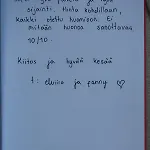 sijainti. Hinta kohdillaan,
kaikki otettu huomioon. Ei
mitään huonoa sanottavaa
10/10.
Kiitos ja hyvää kesää
t: elviira ja penny ♡